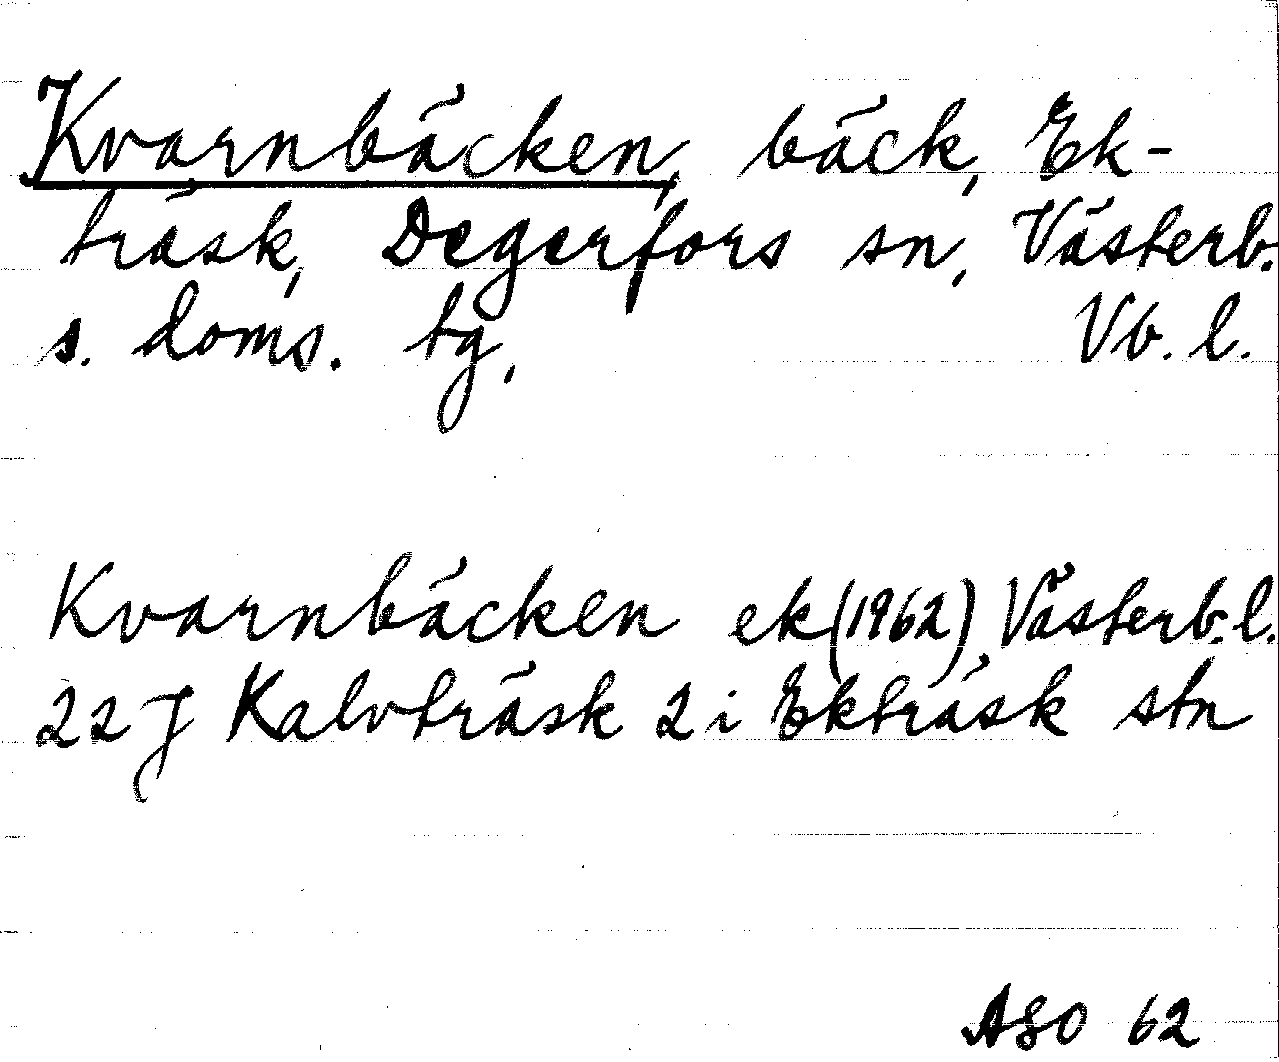 Kvarnbäcken, bäck, Ek-
träsk, Degerfors sn, Västerb.
s. doms. tg, Vb. l.
Kvarnbäcken ek (1962), Västerb. l.
22 J Kalvträsk 2 i Ekträsk stn
ASO 62